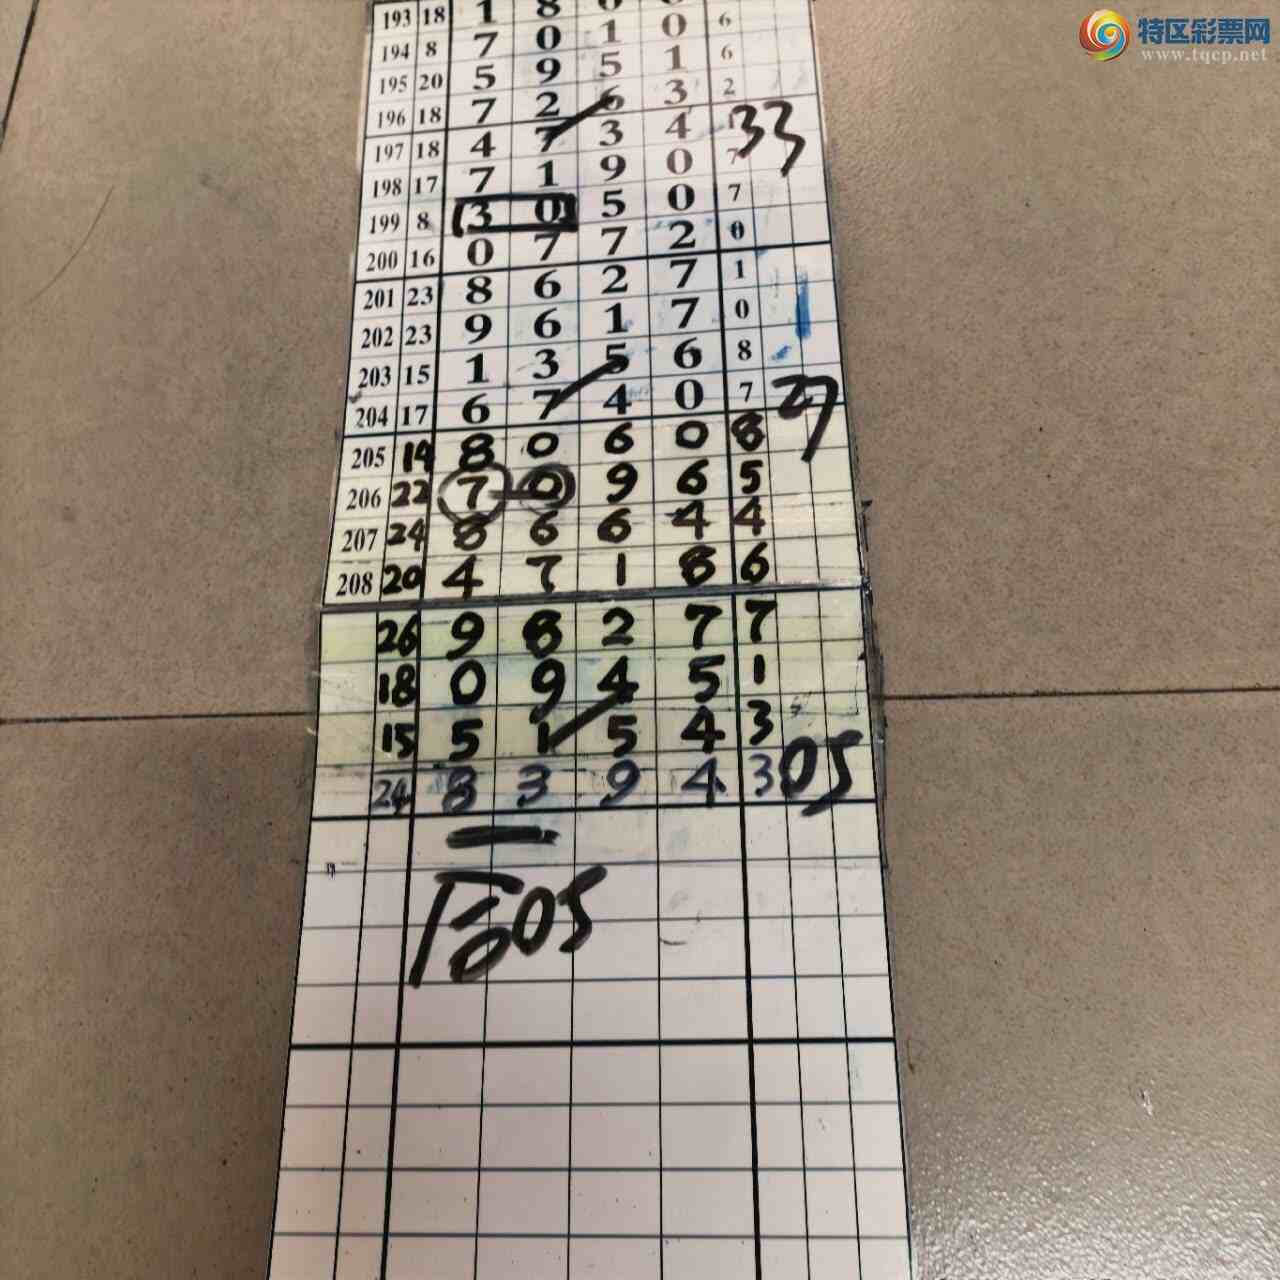 特区彩票网
www.tqcp.net
193 18 1 8
194 8 7 0 1 0 6
195 20 5 9 5 1 6
196 18 7 2 6 3 2
197 18 4 7 3 4 1 33
198 17 7 1 9 0 7
199 8 3 0 5 0 7
200 16 0 7 7 2 0
201 23 8 6 2 7 1
202 23 9 6 1 7 0
203 15 1 3 5 6 8
204 17 6 7 4 0 7 27
205 14 8 0 6 0 8
206 22 7 0 9 6 5
207 24 8 6 6 4 4
208 20 4 7 1 8 6
26 9 8 2 7 7
18 0 9 4 5 1
15 5 1 5 4 3
24 8 3 9 4 3 05
05